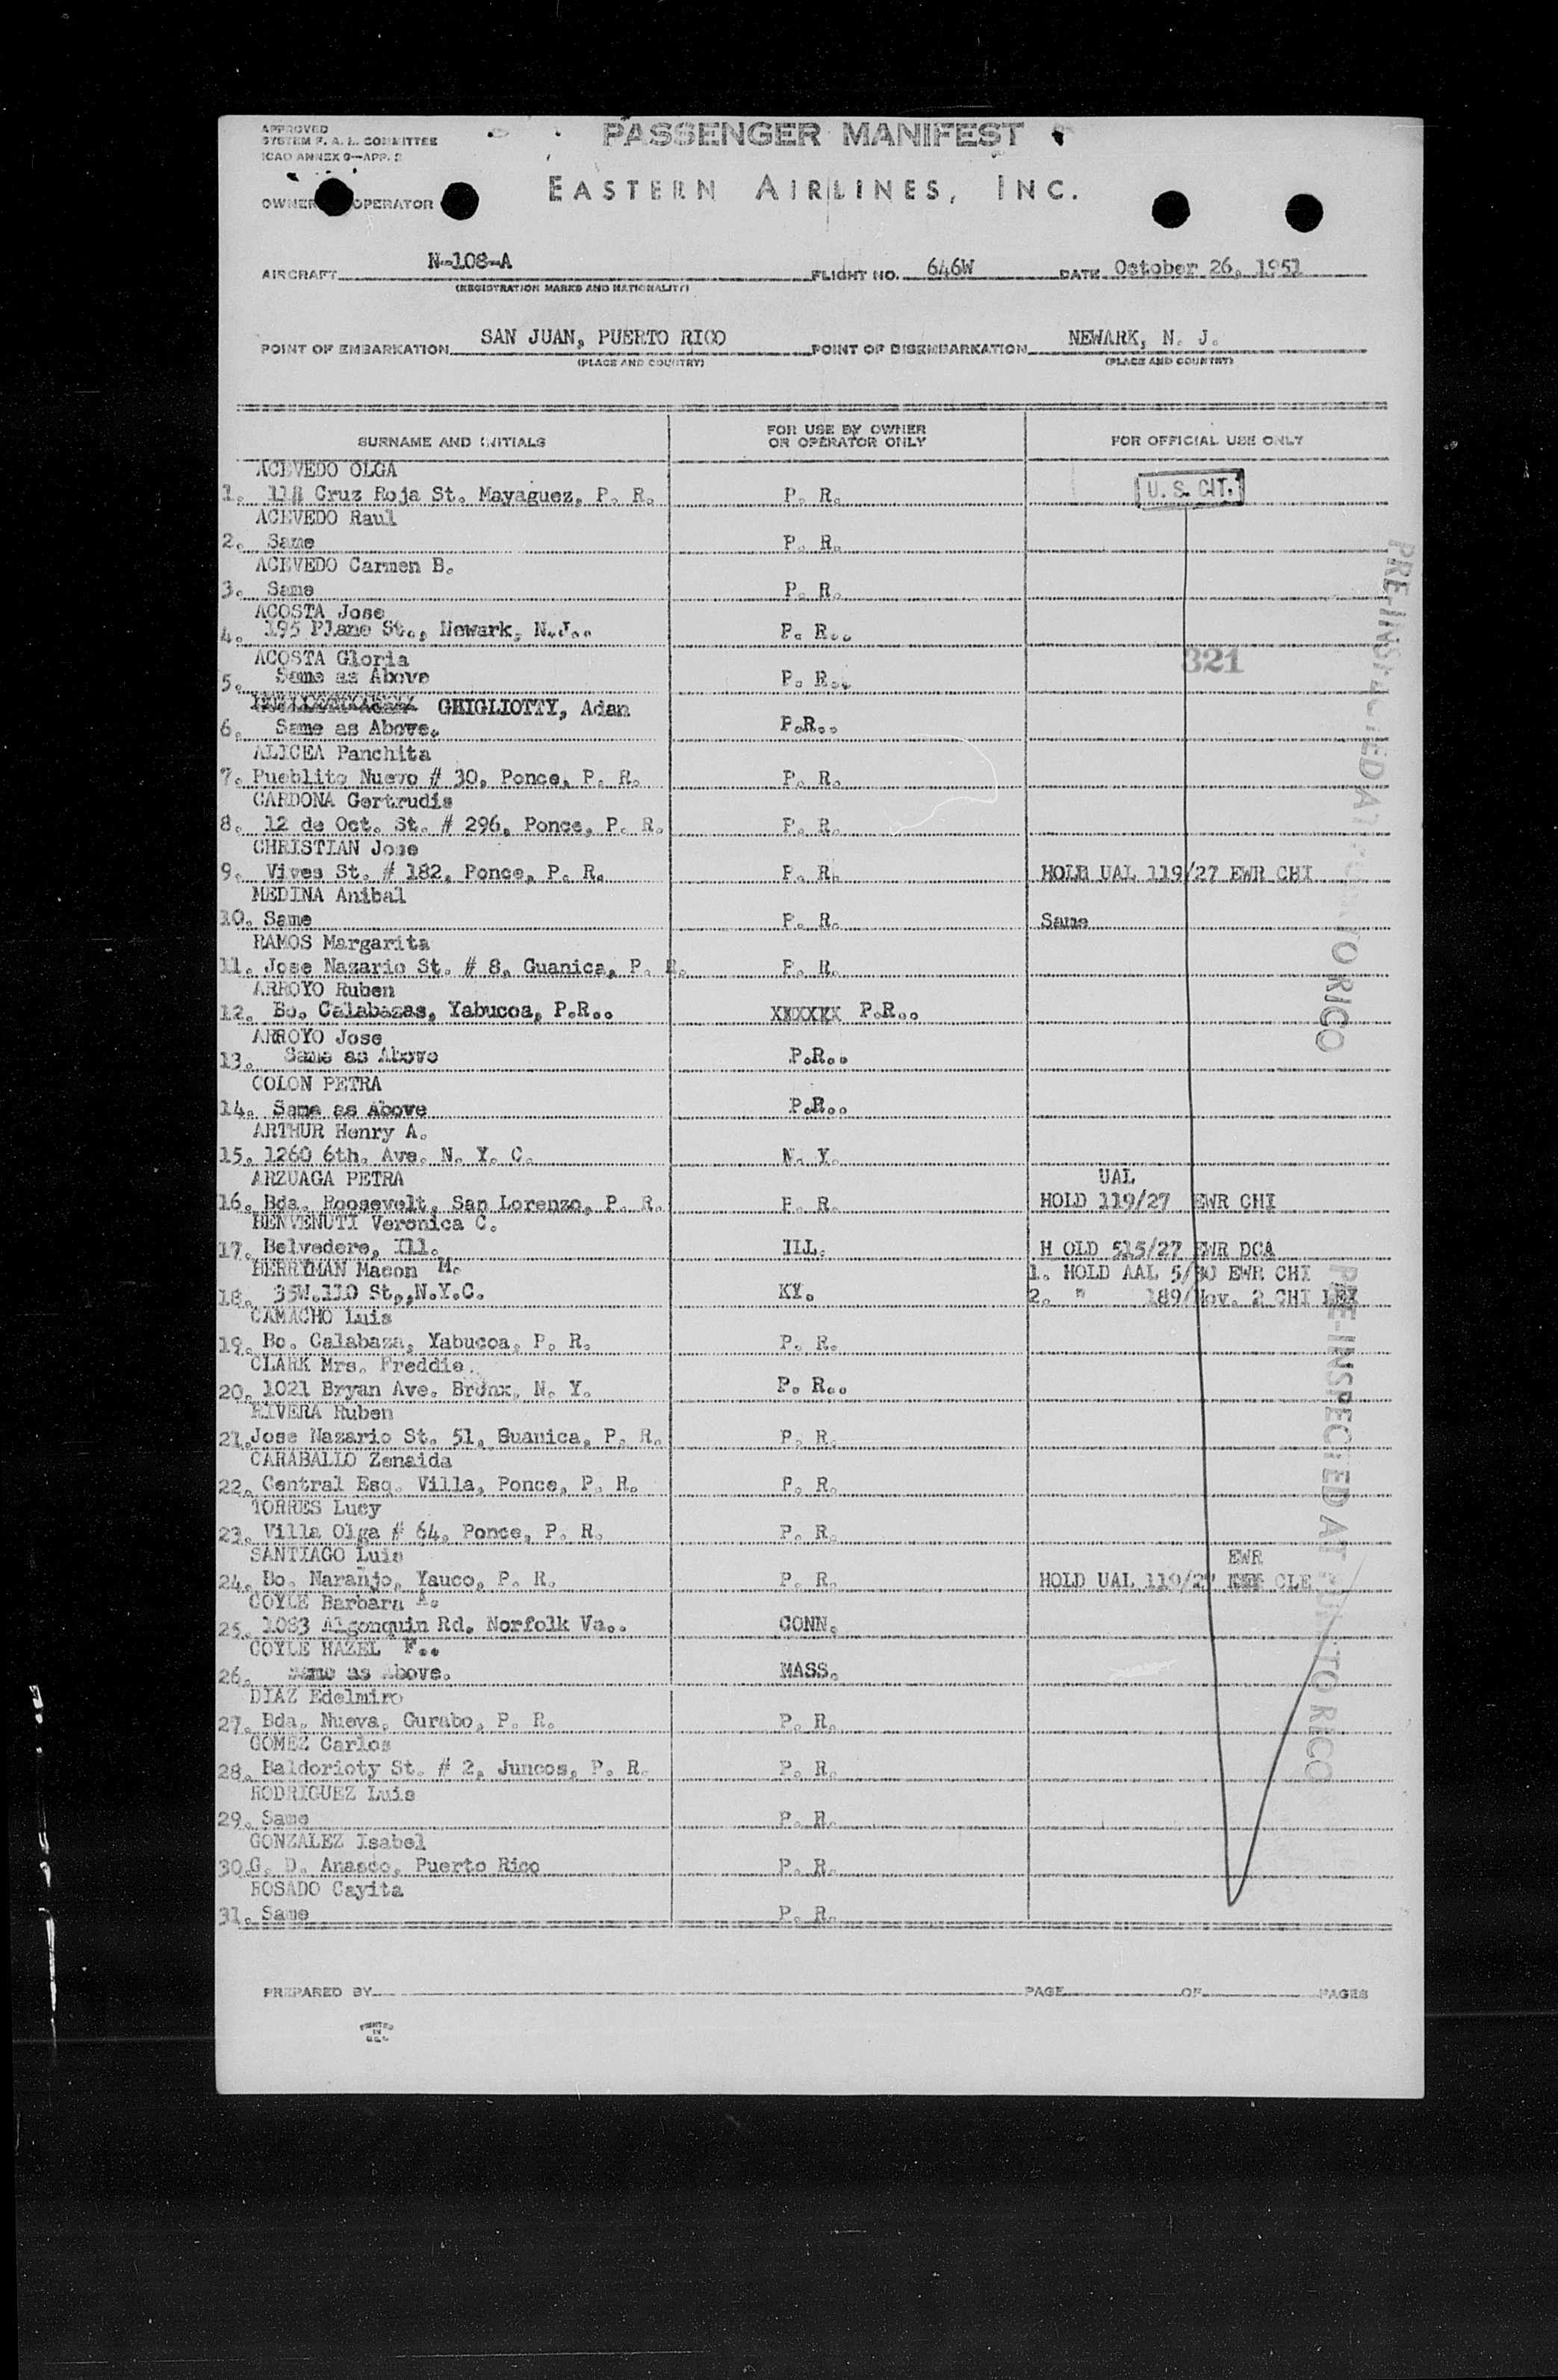 APPROVED
SYSTEM F. A. L. COMMITTEE
ICAO ANNEX 9—APP. 2
PASSENGER MANIFEST
OWNER OPERATOR
EASTERN AIRLINES, INC.
AIRCRAFT N-108-A FLIGHT NO. 646W DATE October 26, 1951
(REGISTRATION MARKS AND NATIONALITY)
POINT OF EMBARKATION SAN JUAN, PUERTO RICO POINT OF DISEMBARKATION NEWARK, N. J.
(PLACE AND COUNTRY) (PLACE AND COUNTRY)
SURNAME AND INITIALS FOR USE BY OWNER OR OPERATOR ONLY FOR OFFICIAL USE ONLY
ACEVEDO OLGA
1. 118 Cruz Roja St. Mayaguez, P. R. P. R. U. S. CIT.
ACEVEDO Raul
2. Same P. R.
ACEVEDO Carmen B.
3. Same P. R.
ACOSTA Jose
4. 195 Plane St., Newark, N.J.. P. R..
ACOSTA Gloria 321
5. Same as Above P. R..
GHIGLIOTTY, Adan
6. Same as Above. P.R..
ALICEA Panchita
7. Pueblito Nuevo # 30, Ponce, P. R. P. R.
CARDONA Gertrudis
8. 12 de Oct. St. # 296, Ponce, P. R. P. R.
CHRISTIAN Jose
9. Vives St. # 182, Ponce, P. R. P. R. HOLD UAL 119/27 EWR CHI
MEDINA Anibal
10. Same P. R. Same
RAMOS Margarita
11. Jose Nazario St. # 8, Guanica, P. R. P. R.
ARROYO Ruben
12. Bo. Calabazas, Yabucoa, P.R.. XXXXXX P.R..
ARROYO Jose
13. Same as Above P.R..
COLON PETRA
14. Same as Above P.R..
ARTHUR Henry A.
15. 1260 6th. Ave. N. Y. C. N. Y.
ARZUAGA PETRA UAL
16. Bda. Roosevelt, San Lorenzo, P. R. P. R. HOLD 119/27 EWR CHI
BENVENUTI Veronica C.
17. Belvedere, Ill. ILL. H OLD 515/27 EWR DCA
BERRYMAN Macon M. 1. HOLD AAL 5/30 EWR CHI
18. 35W.110 St,,N.Y.C. KY. 2. " 189/Nov. 2 CHI LEX
CAMACHO Luis
19. Bo. Calabaza, Yabucoa, P. R. P. R.
CLARK Mrs. Freddie.
20. 1021 Bryan Ave. Bronx, N. Y. P. R..
RIVERA Ruben
21. Jose Nazario St. 51, Guanica, P. R. P. R.
CARABALLO Zenaida
22. Central Esq. Villa, Ponce, P. R. P. R.
TORRES Lucy
23. Villa Olga # 64, Ponce, P. R. P. R.
SANTIAGO Luis EWR
24. Bo. Naranjo, Yauco, P. R. P. R. HOLD UAL 119/27 CLE
COYLE Barbara A.
25. 1083 Algonquin Rd. Norfolk Va.. CONN.
COYLE HAZEL F..
26. Same as Above. MASS.
DIAZ Edelmiro
27. Bda. Nueva, Gurabo, P. R. P. R.
GOMEZ Carlos
28. Baldorioty St. # 2, Juncos, P. R. P. R.
RODRIGUEZ Luis
29. Same P. R.
GONZALEZ Isabel
30. G. D. Anasco, Puerto Rico P. R.
ROSADO Cayita
31. Same P. R.
PRE-INSPECTED AT PUERTO RICO
PRE-INSPECTED AT PUERTO RICO
PREPARED BY PAGE OF PAGES
PRINTED
IN
U.S.A.